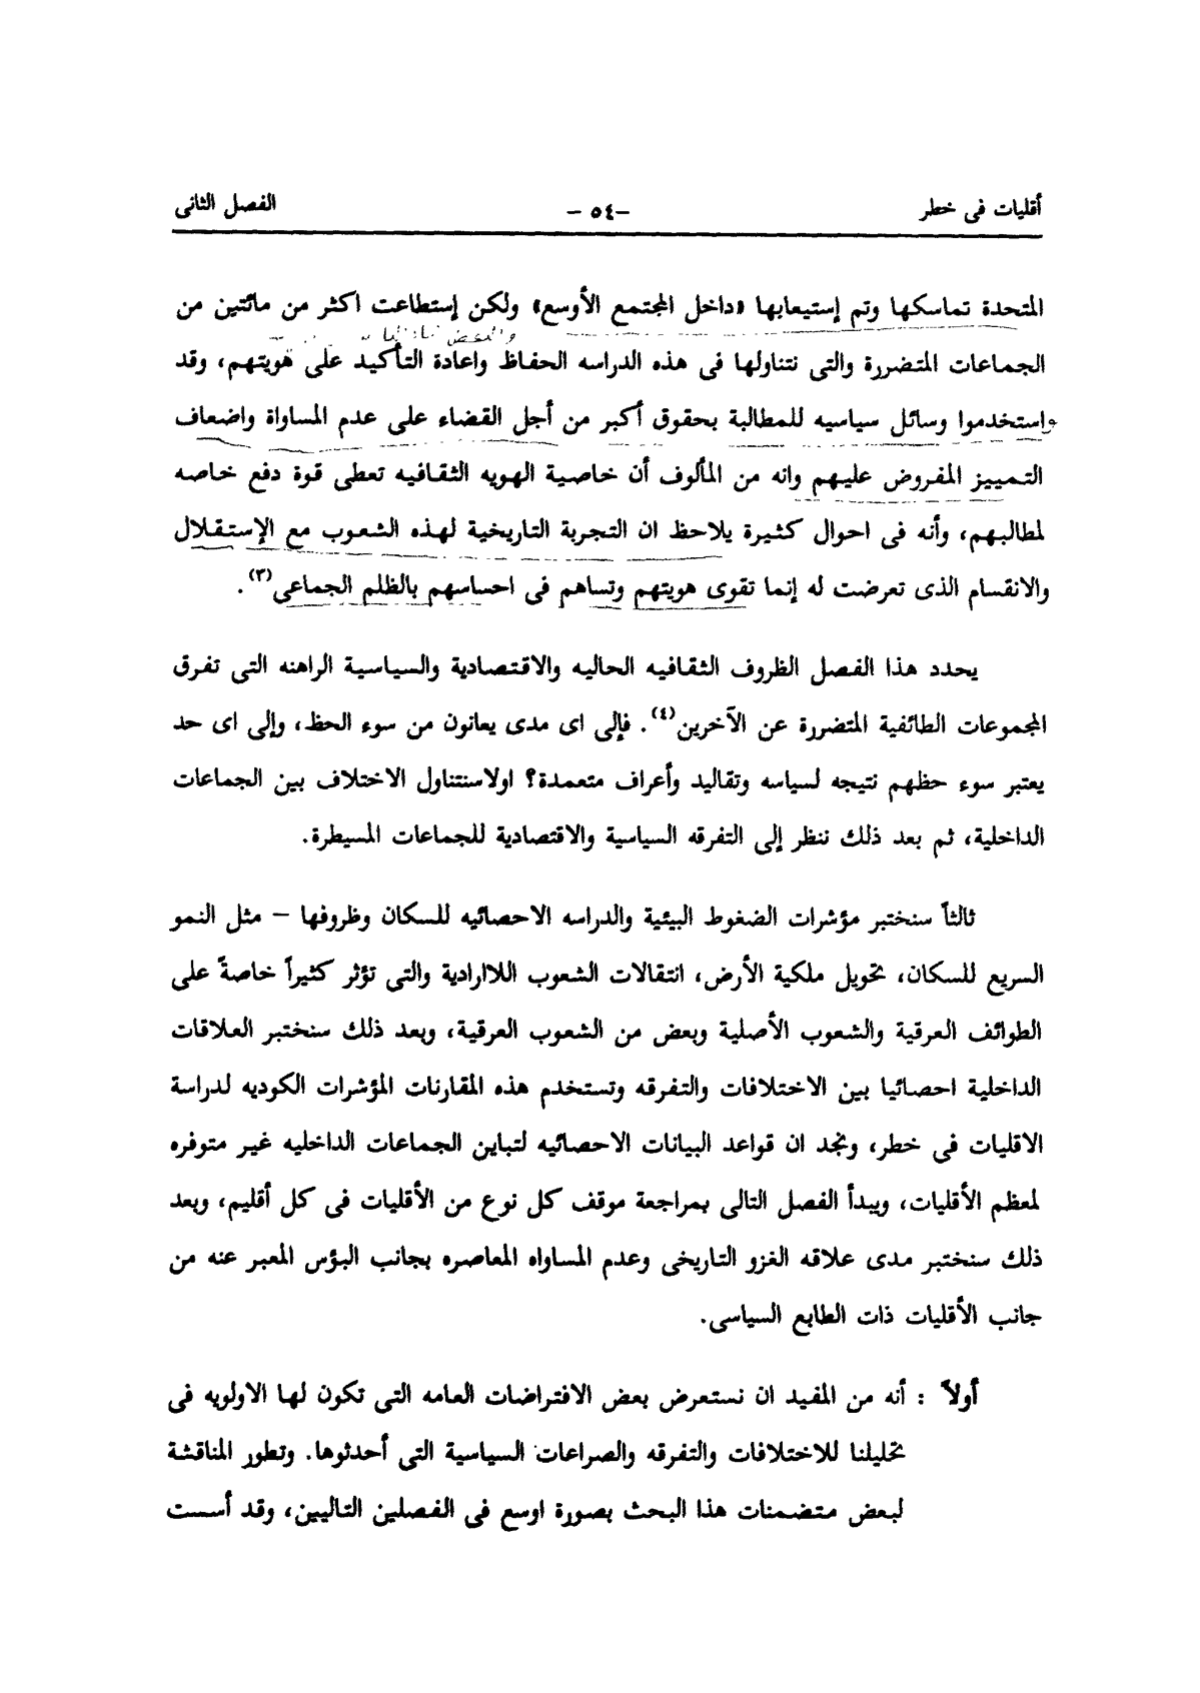 أقليات فى خطر
–٥٤ –
الفصل الثانى
المتحدة تماسكها وتم إستيعابها «داخل المجتمع الأوسع» ولكن إستطاعت اكثر من مائتين من
الجماعات المتضررة والتى نتناولها فى هذه الدراسه الحفاظ واعادة التأكيد على هويتهم، وقد
واستخدموا وسائل سياسيه للمطالبة بحقوق أكبر من أجل القضاء على عدم المساواة واضعاف
التمييز المفروض عليهم وانه من المألوف أن خاصية الهويه الثقافيه تعطى قوة دفع خاصه
لمطالبهم، وأنه فى احوال كثيرة يلاحظ ان التجربة التاريخية لهذه الشعوب مع الإستقلال
والانقسام الذى تعرضت له إنما تقوى هويتهم وتساهم فى احساسهم بالظلم الجماعى(٣).
يحدد هذا الفصل الظروف الثقافيه الحاليه والاقتصادية والسياسية الراهنه التى تفرق
المجموعات الطائفية المتضررة عن الآخرين(٤). فإلى اى مدى يعانون من سوء الحظ، وإلى اى حد
يعتبر سوء حظهم نتيجه لسياسه وتقاليد وأعراف متعمدة؟ اولاسنتناول الاختلاف بين الجماعات
الداخلية، ثم بعد ذلك ننظر إلى التفرقه السياسية والاقتصادية للجماعات المسيطرة.
ثالثاً سنختبر مؤشرات الضغوط البيئية والدراسه الاحصائيه للسكان وظروفها – مثل النمو
السريع للسكان، تحويل ملكية الأرض، انتقالات الشعوب اللاارادية والتى تؤثر كثيراً خاصةً على
الطوائف العرقية والشعوب الأصلية وبعض من الشعوب العرقية، وبعد ذلك سنختبر العلاقات
الداخلية احصائيا بين الاختلافات والتفرقه وتستخدم هذه المقارنات المؤشرات الكوديه لدراسة
الاقليات فى خطر، ونجد ان قواعد البيانات الاحصائيه لتباين الجماعات الداخليه غير متوفره
لمعظم الأقليات، ويبدأ الفصل التالى بمراجعة موقف كل نوع من الأقليات فى كل أقليم، وبعد
ذلك سنختبر مدى علاقه الغزو التاريخى وعدم المساواه المعاصره بجانب البؤس المعبر عنه من
جانب الأقليات ذات الطابع السياسى.
أولاً : أنه من المفيد ان نستعرض بعض الافتراضات العامه التى تكون لها الاولويه فى
تحليلنا للاختلافات والتفرقه والصراعات السياسية التى أحدثوها. وتطور المناقشة
لبعض متضمنات هذا البحث بصورة اوسع فى الفصلين التاليين، وقد أسست